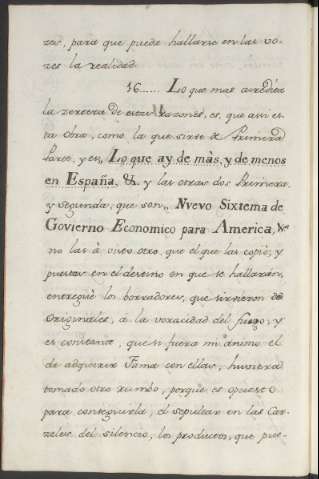 zes, para que pueda hallarse en las vo-
zes la realidad.
16...... Lo que mas acredita
la tercera de estas razones, es, que assi es-
ta Obra, como la que sirve de Primera
Parte, y es,, Lo que ay de màs, y de menos
en España, &. y las otras dos Primera,
y segunda, que son,, Nvevo Sixtema de
Govierno Economico para America, &a
no las à visto otro, que el que las copiò, y
puestas en el destino en que se hallaràn,
entreguè los borradores, que sirvieron de
Originales, à la voracidad del fuego, y
es constante, que si fuera mi animo el
de adquirir Fama con ellas, huviera
tomado otro rumbo, porque es opuesto
para conseguirla, el sepultar en las Car-
zeles del silencio, los productos, que pue-